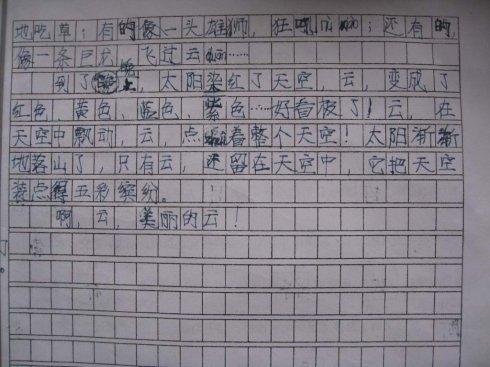 地吃草；有的像一头雄狮，狂吼；还有的，
像一条巨龙，飞过云……
到了晚上，太阳染红了天空，云，变成了
红色、黄色、蓝色、紫色……好看极了！云，在
天空中飘动，云，点缀着整个天空！太阳渐渐
地落山了，只有云，还留在天空中，它把天空
装点得五彩缤纷。
啊，云，美丽的云！